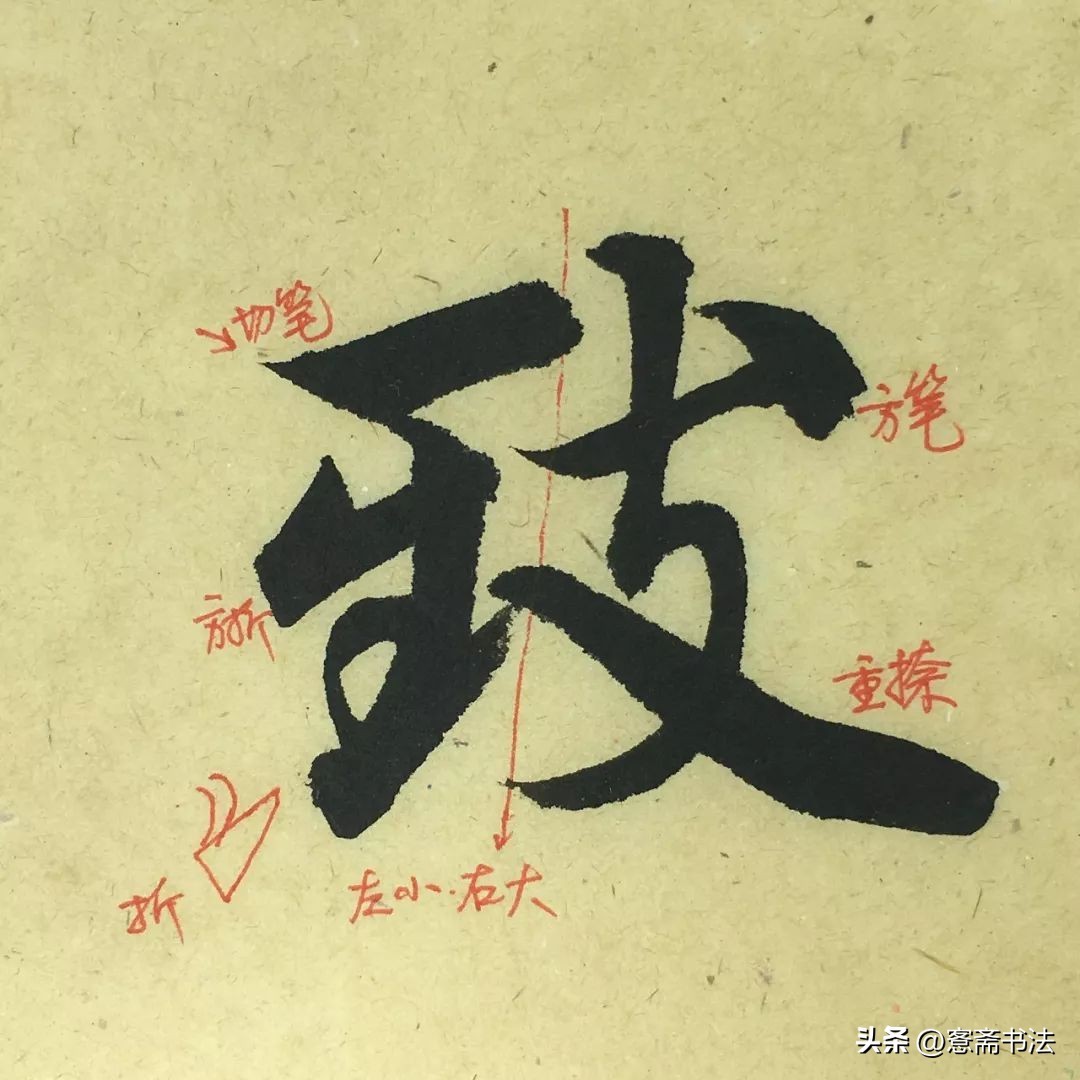 致
切笔
方笔
方折
重捺
折
左小.右大
头条 @蹇斋书法